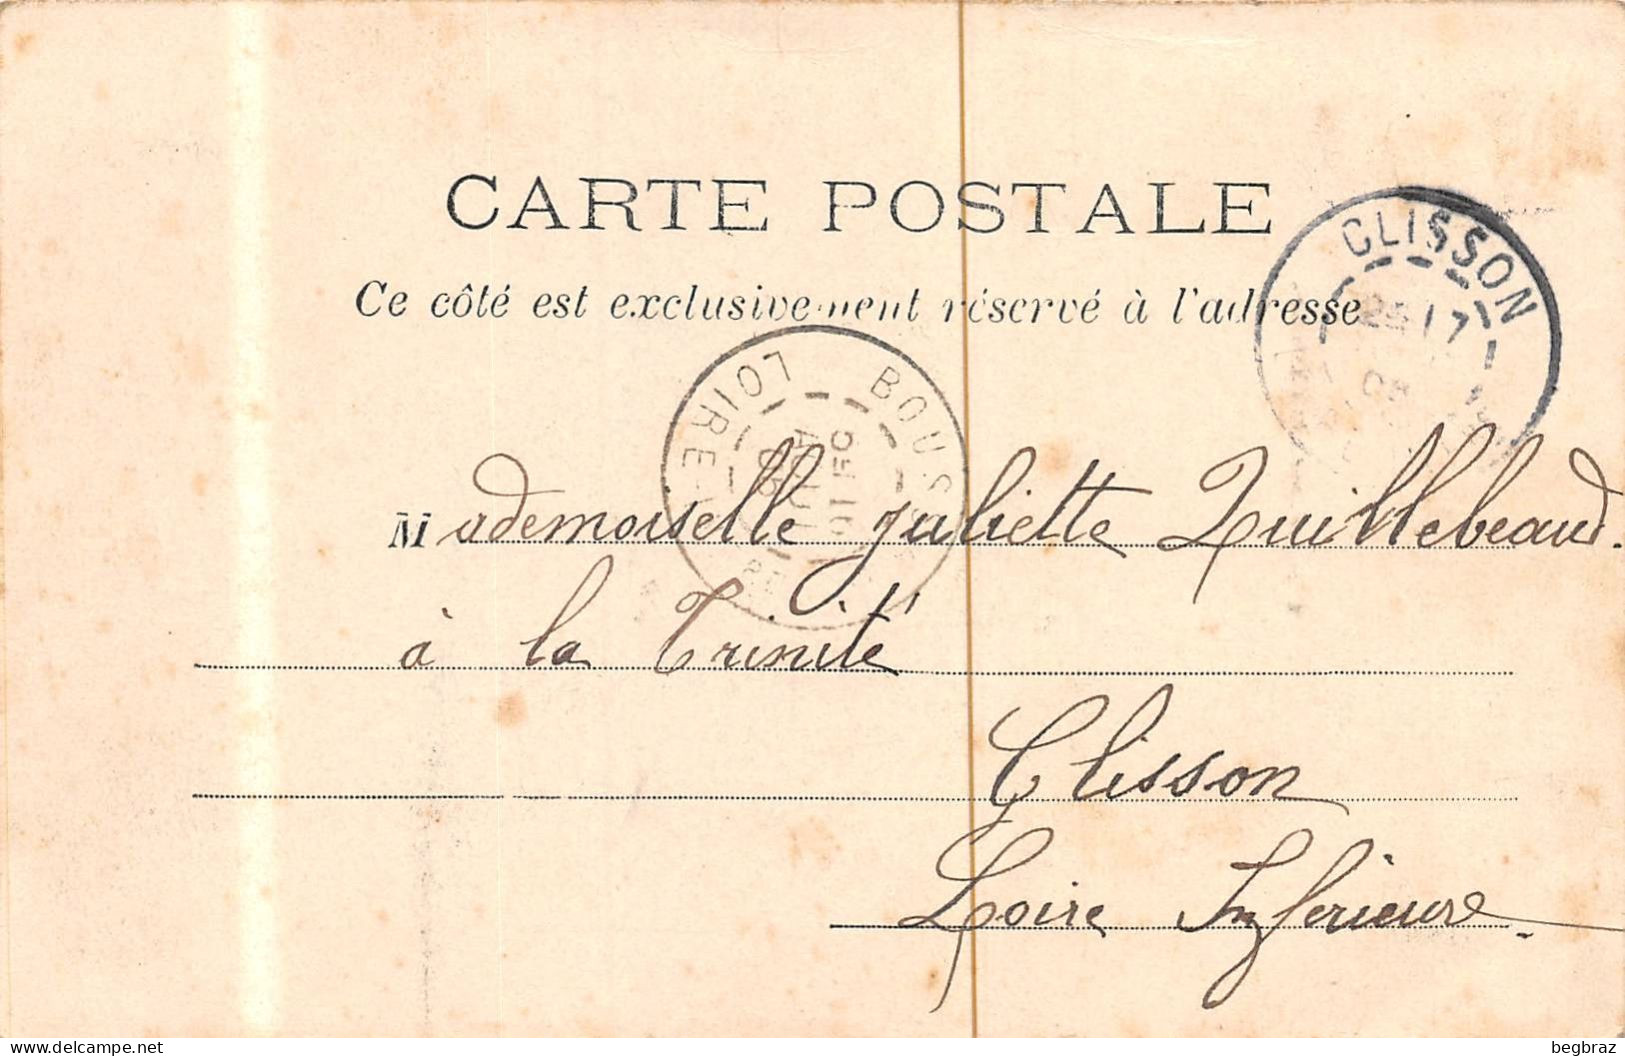 CARTE POSTALE
Ce côté est exclusivement réservé à l'adresse
CLISSON
25 17
LOIRE
BOUSS
Mademoiselle Juliette Quillebeaud.
à la Trinité
Clisson
Loire Inferieure
begbraz